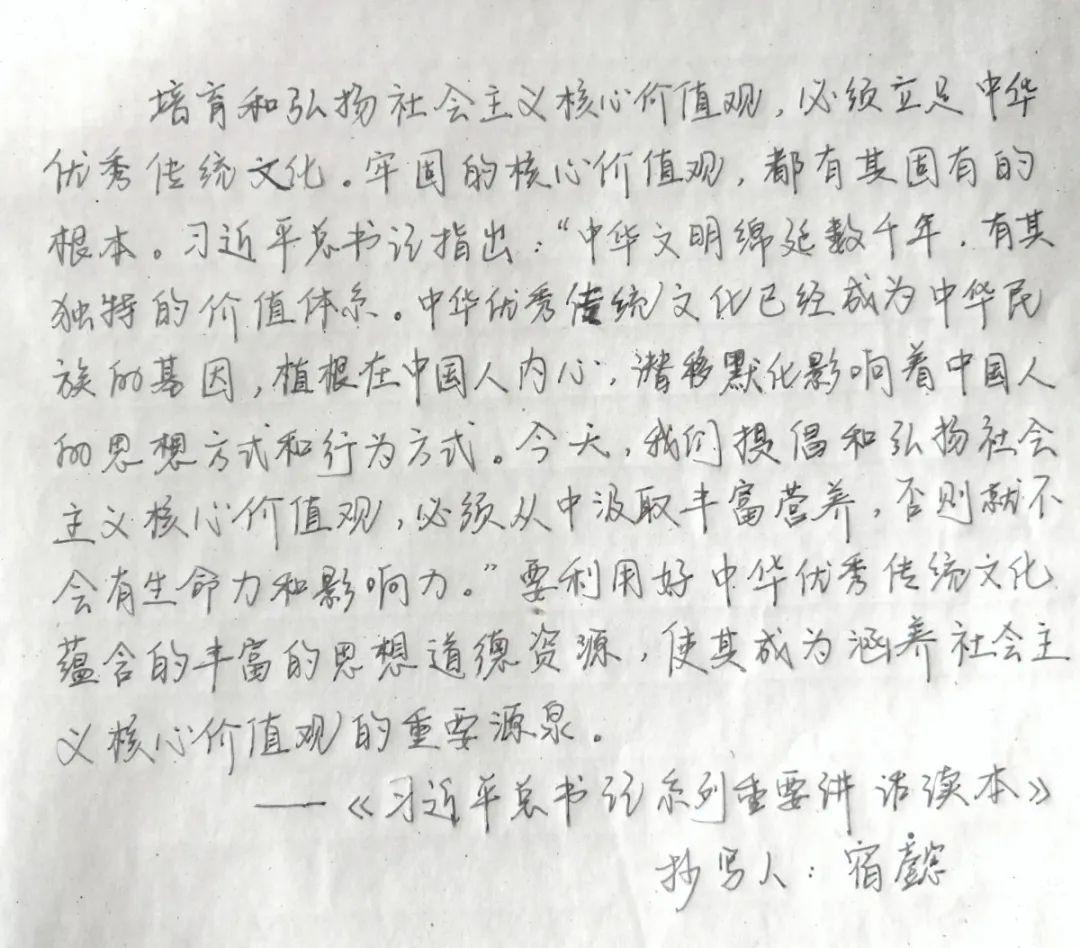 培育和弘扬社会主义核心价值观，必须立足中华
优秀传统文化。牢固的核心价值观，都有其固有的
根本。习近平总书记指出：“中华文明绵延数千年，有其
独特的价值体系。中华优秀传统文化已经成为中华民
族的基因，植根在中国人内心，潜移默化影响着中国人
的思想方式和行为方式。今天，我们提倡和弘扬社会
主义核心价值观，必须从中汲取丰富营养，否则就不
会有生命力和影响力。”要利用好中华优秀传统文化
蕴含的丰富的思想道德资源，使其成为涵养社会主
义核心价值观的重要源泉。
——《习近平总书记系列重要讲话读本》
抄写人：宿